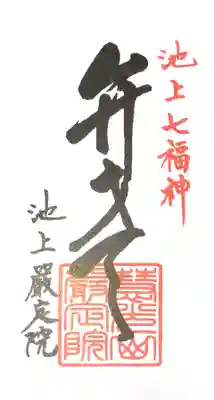 池上七福神
弁才天
池上 嚴定院
嚴定院